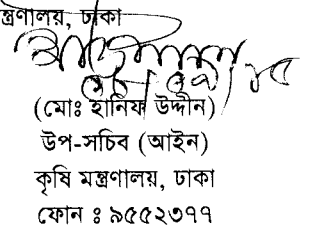 ন্ত্রণালয়, ঢাকা
(মোঃ হানিফ উদ্দীন)
উপ-সচিব (আইন)
কৃষি মন্ত্রণালয়, ঢাকা
ফোন ঃ ৯৫৫২৩৭৭